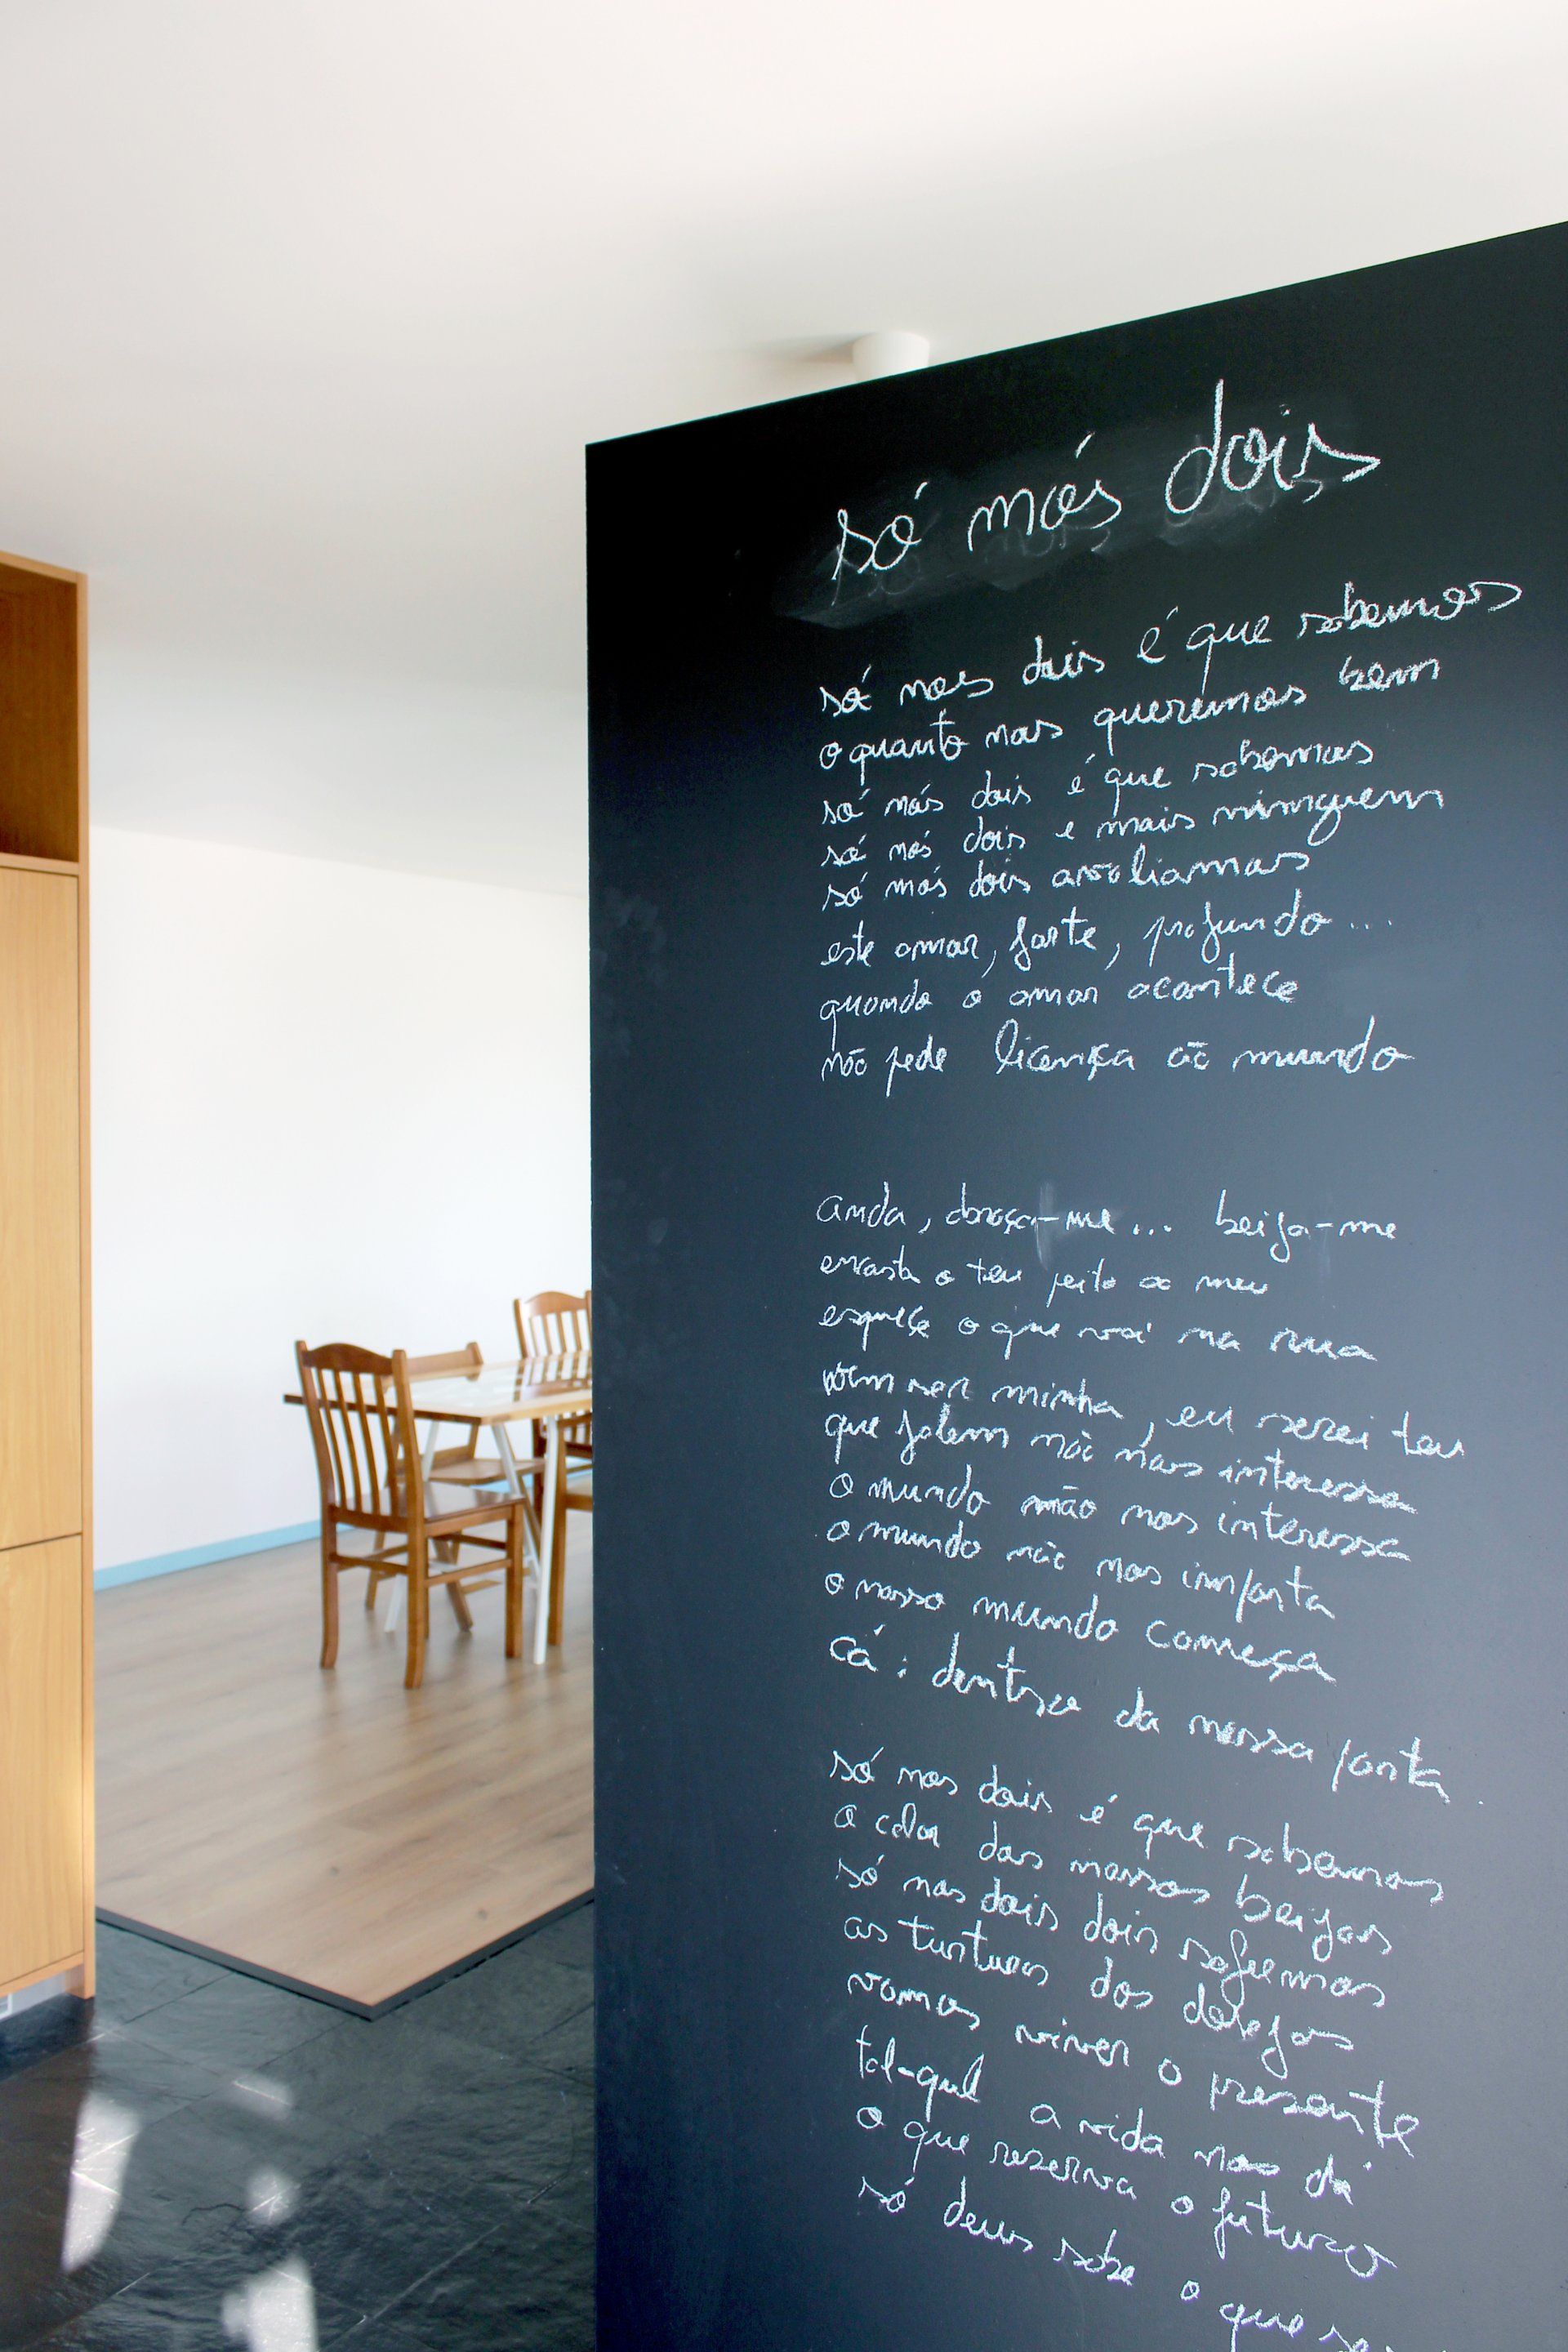 só nós dois
só nós dois é que sabemos
o quanto nos queremos bem
só nós dois é que sabemos
só nós dois e mais ninguem
só nós dois avaliamos
este amor, forte, profundo...
quando o amor acontece
não pede licença ao mundo
anda, abraça-me... beija-me
encosta o teu peito ao meu
esqueçe o que vai na rua
vem ser minha, eu serei teu
que falem não nos interessa
o mundo não nos interessa
o mundo não nos importa
o nosso mundo começa
cá: dentro da nossa porta.
só nos dois é que sabemos
o calor dos nossos beijos
só nos dois dois sofremos
as torturas dos desejos
vamos viver o presente
tal-qual a vida nos dá
o que reserva o futuro
só deus sabe o que se